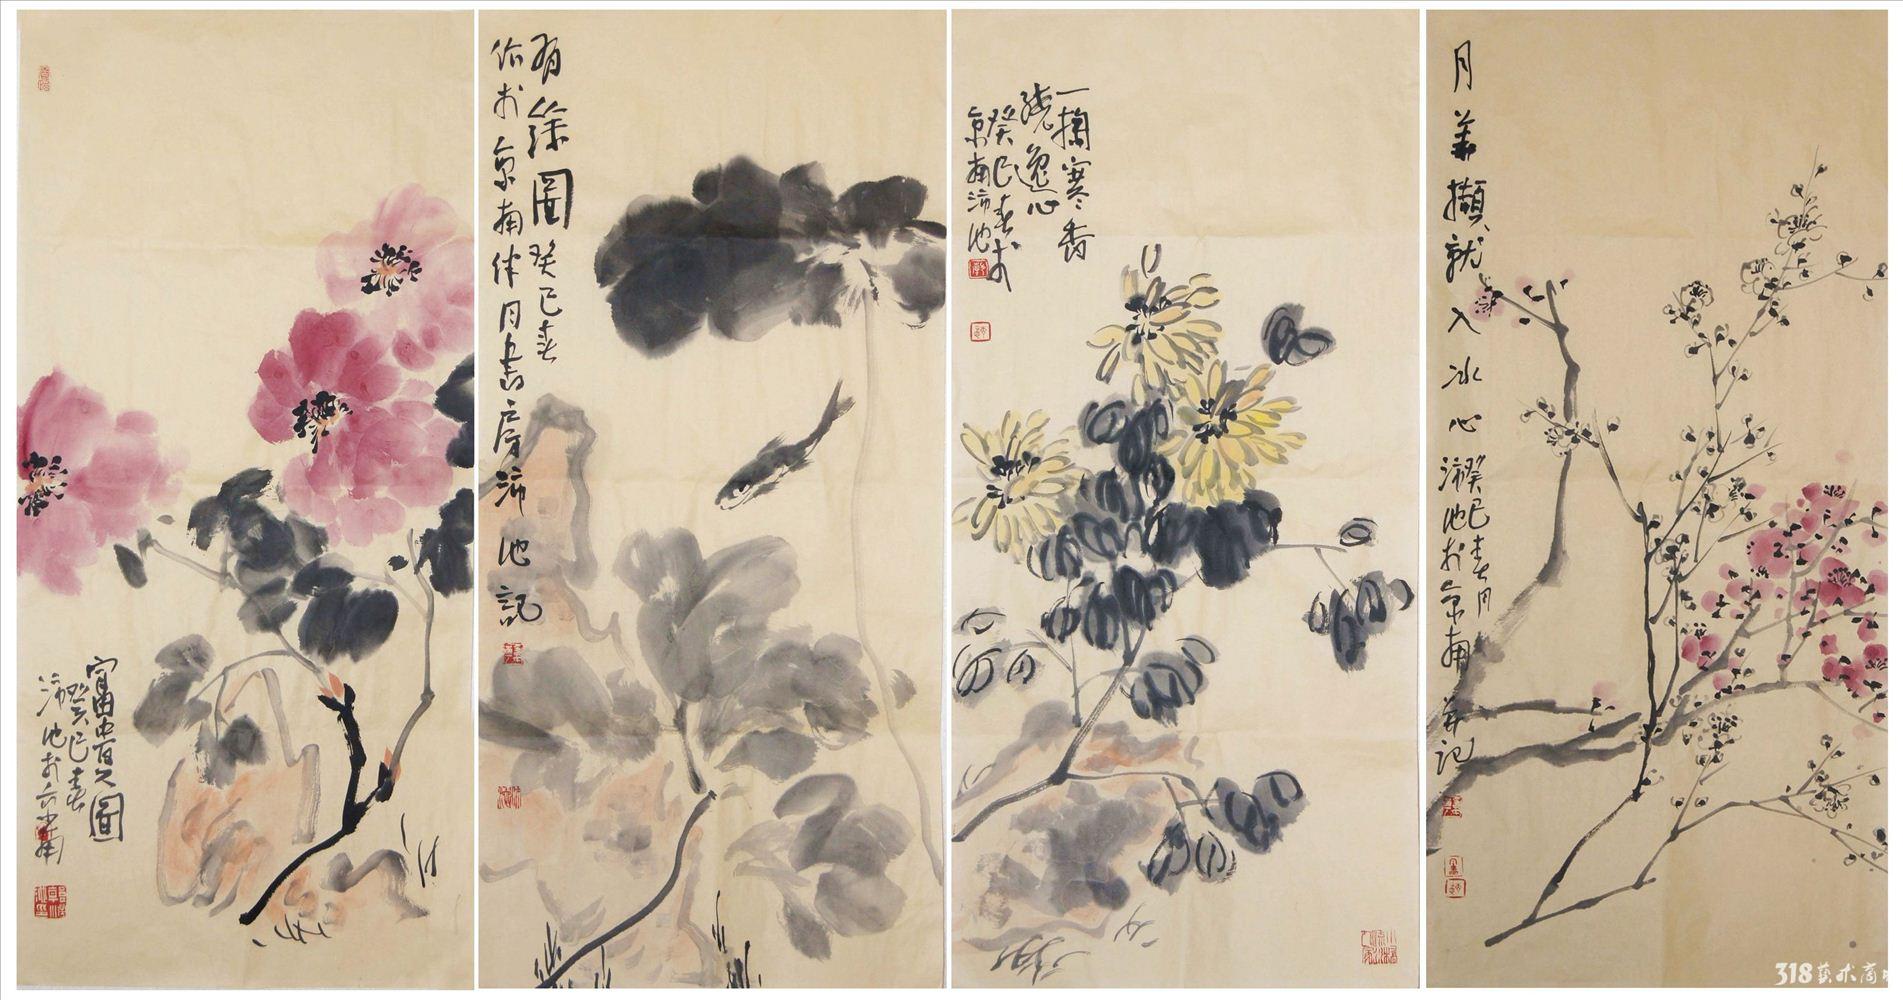 富贵之图
癸巳春
沛池于京南
有余图 癸巳春
作于京南伴月书房 沛池记
一掬寒香
绕逸心
癸巳春于
京南沛池
月華擷就入冰心 癸巳春月
沛池于京南并记
318艺术商